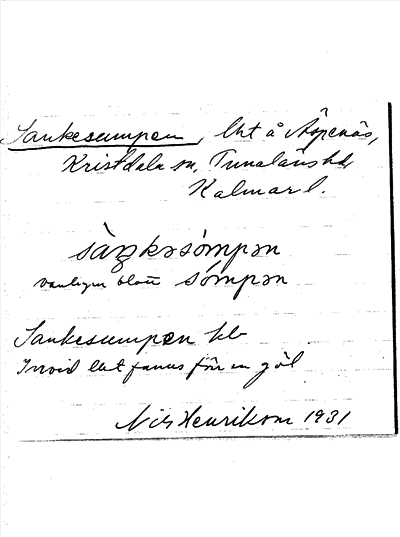 Sankesumpen, lht å Aspenäs,
Kristdala sn, Tunaläns hd,
Kalmar l.
sàŋkəsòmpən
vanligen blott sómpən
Sankesumpen lht
Invid lht fanns förr en göl
Nils Henrikson 1931